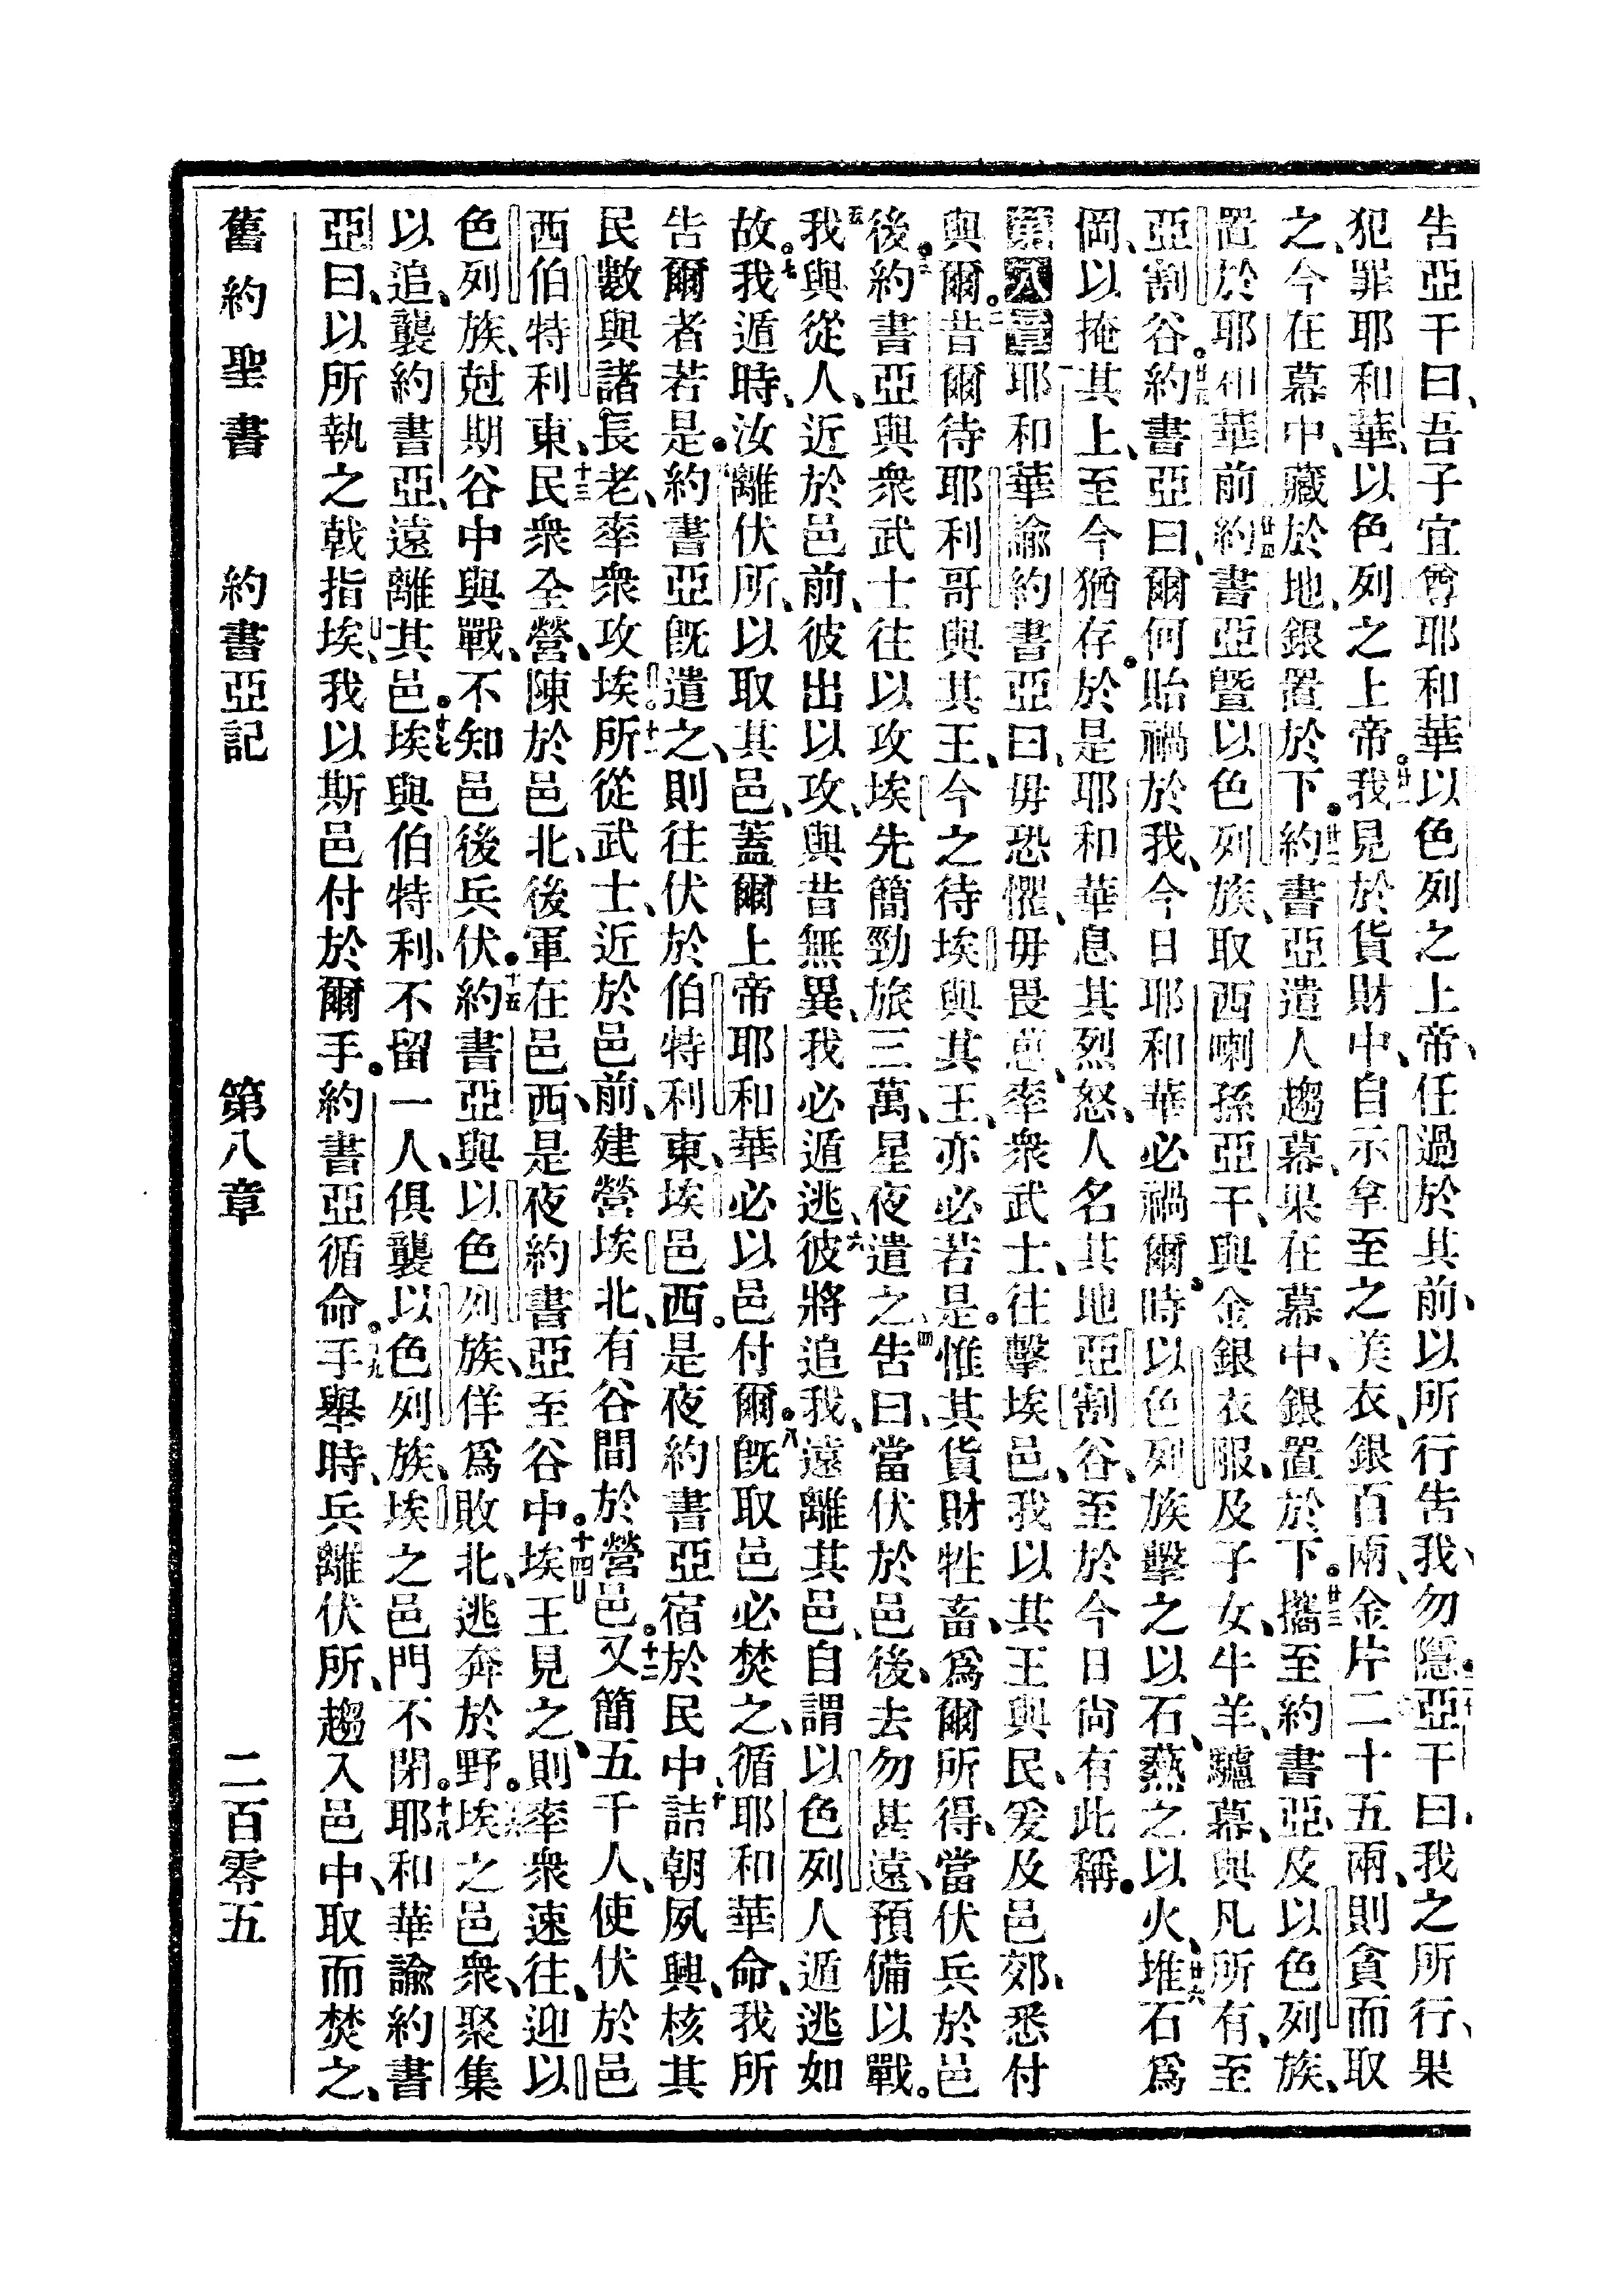 告亞干曰、吾子宜尊耶和華以色列之上帝、任過於其前、以所行告我、勿隱。亞干曰、我之所行、果
犯罪耶和華、以色列之上帝。廿一我見於貨財中、自示拿至之美衣、銀百兩、金片二十五兩、則貪而取
之、今在幕中、藏於地、銀置於下。廿二約書亞遣人趨幕、果在幕中、銀置於下。廿三攜至約書亞、及以色列族、
置於耶和華前。廿四約書亞暨以色列族、取西喇孫亞干、與金銀衣服、及子女、牛羊、驢幕、與凡所有、至
亞割谷。廿五約書亞曰、爾何貽禍於我、今日耶和華必禍爾。時以色列族擊之以石、燕之以火、廿六堆石爲
岡、以掩其上、至今猶存。於是耶和華息其烈怒、人名其地亞割谷、至於今日尙有此稱。
第八章 一耶和華諭約書亞曰、毋恐懼、毋畏葸、率衆武士、往擊埃邑、我以其王與民、爰及邑郊、悉付
與爾。二昔爾待耶利哥與其王、今之待埃與其王、亦必若是。惟其貨財牲畜、爲爾所得、當伏兵於邑
後。三約書亞與衆武士往以攻埃、先簡勁旅三萬、星夜遣之、四告曰、當伏於邑後、去勿甚遠、預備以戰。
五我與從人、近於邑前、彼出以攻、與昔無異、我必遁逃、六彼將追我、遠離其邑、自謂以色列人遁逃如
故。七我遁時、汝離伏所、以取其邑、蓋爾上帝耶和華、必以邑付爾。八旣取邑必焚之、循耶和華命、我所
告爾者若是。九約書亞旣遣之、則往伏於伯特利東、埃邑西。是夜約書亞宿於民中、十詰朝夙興、核其
民數、與諸長老、率衆攻埃。十一所從武士、近於邑前、建營埃北、有谷間於營邑。十二又簡五千人、使伏於邑
西伯特利東、十三民衆全營、陳於邑北、後軍在邑西、是夜約書亞至谷中。十四埃王見之、則率衆速往、迎以
色列族、尅期谷中與戰、不知邑後兵伏。十五約書亞與以色列族、佯爲敗北、逃奔於野。十六埃之邑衆、聚集
以追、襲約書亞、遠離其邑。十七埃與伯特利、不留一人、俱襲以色列族、埃之邑門不閉。十八耶和華諭約書
亞曰、以所執之戟指埃、我以斯邑付於爾手。約書亞循命。十九手舉時、兵離伏所、趨入邑中、取而焚之、
舊約聖書 約書亞記 第八章 二百零五